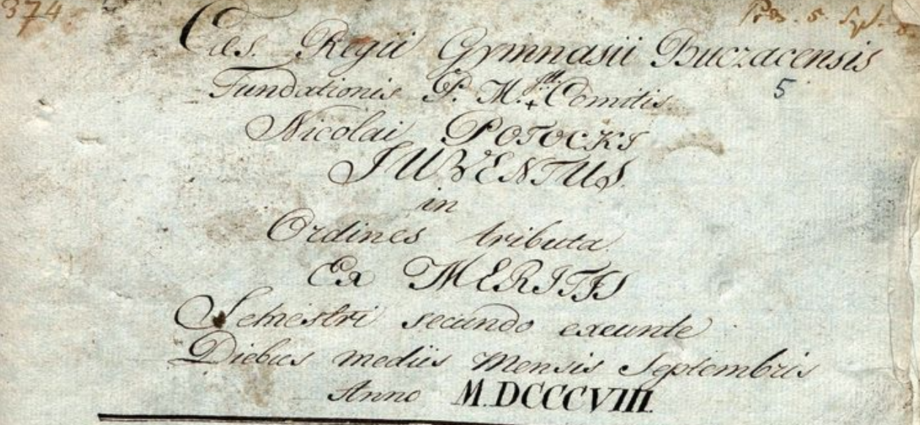 374.
5
Caes. Regii Gymnasii Buczacensis
Fundationis P. M. Comitis
Nicolai POTOCKI
JUVENTUS
in
Ordines tributa
Ex MERITIS
Semestri secundo exeunte
Diebus mediis Mensis Septembris
Anno M.DCCCVIII.